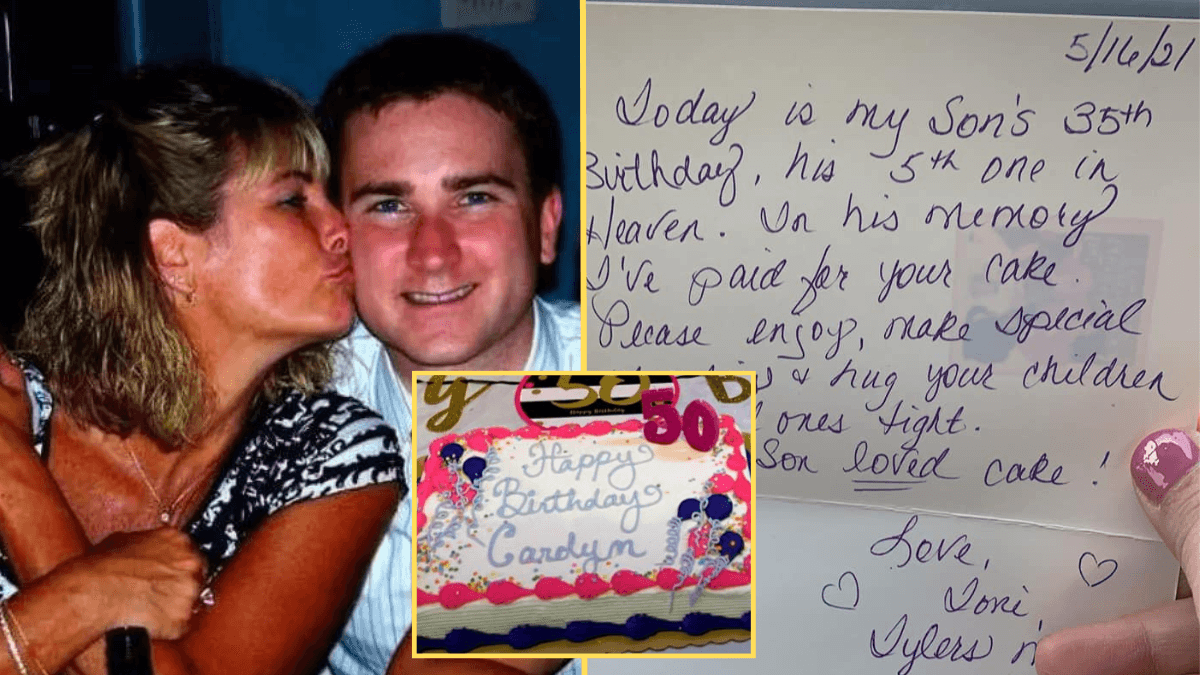 5/16/21
Today is my Son's 35th
Birthday, his 5th one in
Heaven. In his memory
I've paid for your cake.
Please enjoy, make special
& hug your children
ones tight.
Son loved cake!
Love,
Toni,
Tylers
50
Happy Birthday
50
Happy
Birthday
Carolyn